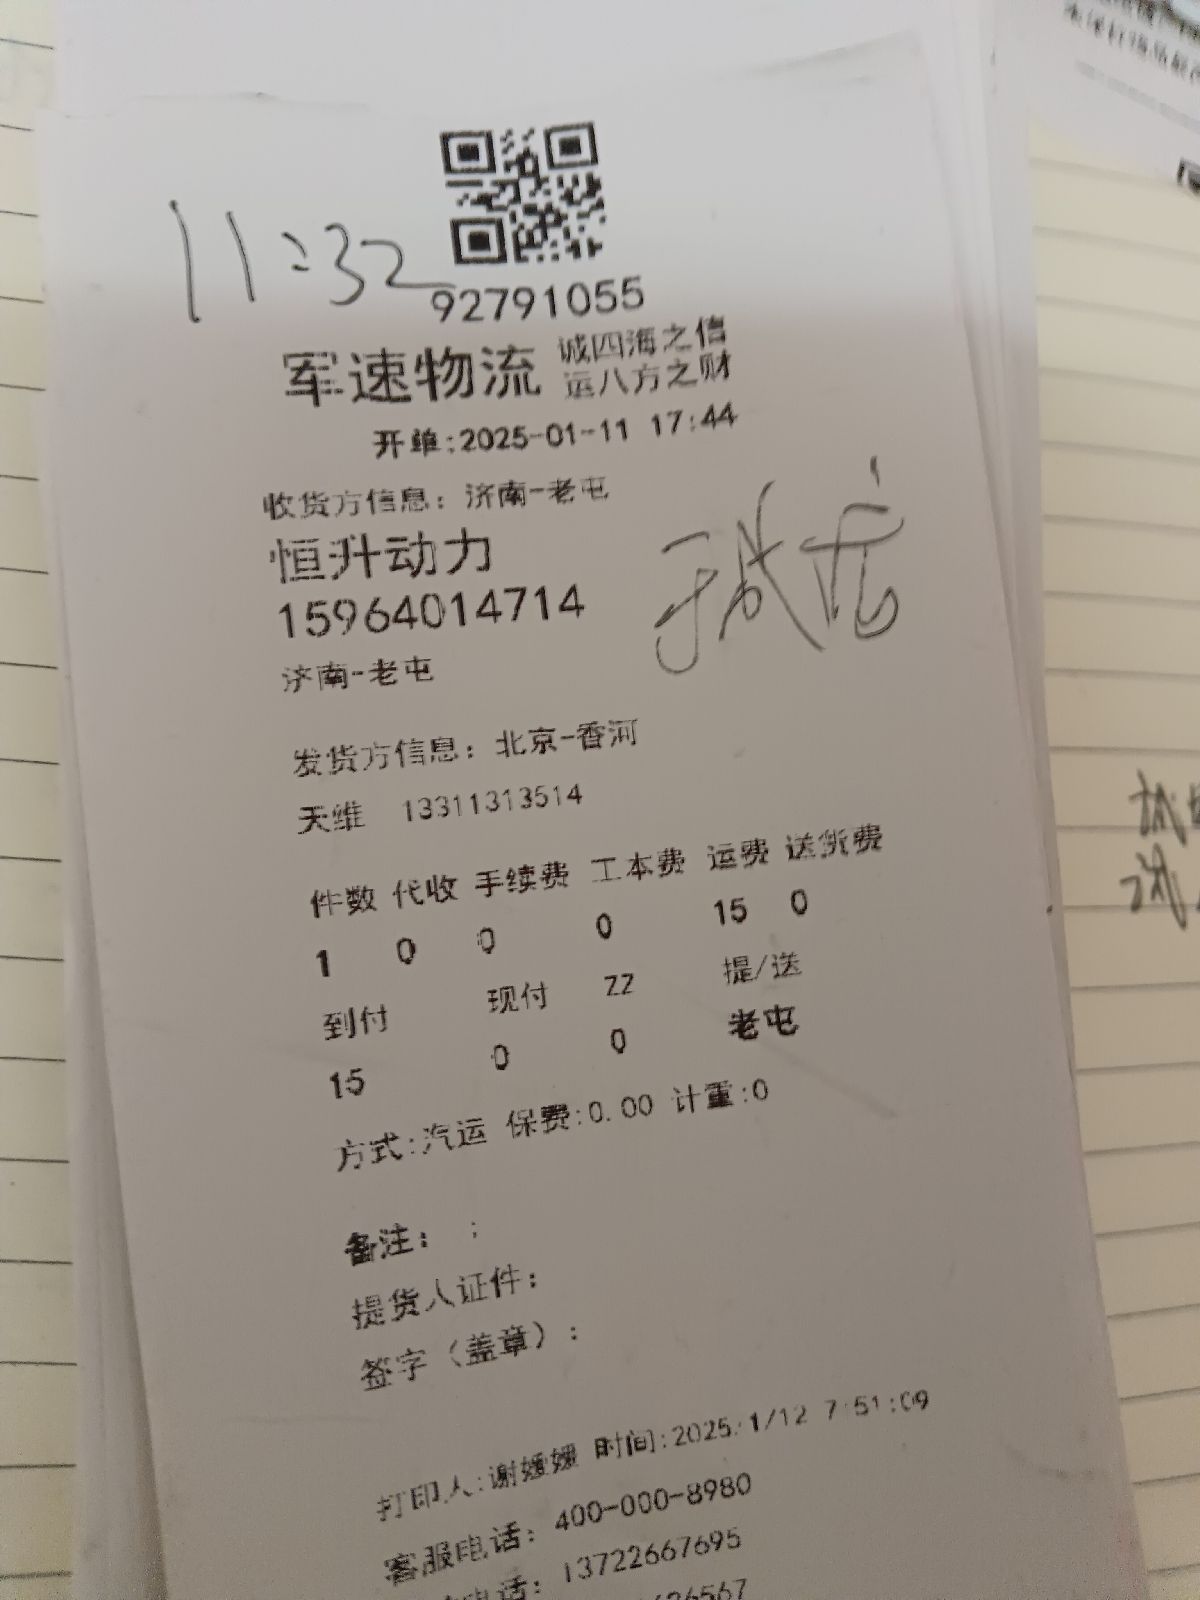 11:32
92791055
军速物流 诚四海之信
运八方之财
开单:2025-01-11 17:44
收货方信息：济南-老屯
恒升动力
15964014714
济南-老屯
发货方信息：北京-香河
天维 13311313514
件数 代收 手续费 工本费 运费 送货费
1 0 0 0 15 0
到付 现付 ZZ 提/送
15 0 0 老屯
方式:汽运 保费:0.00 计重:0
备注： ；
提货人证件：
签字（盖章）：
打印人:谢媛媛 时间:2025/1/12 7:51:09
客服电话：400-000-8980
电话：13722667695